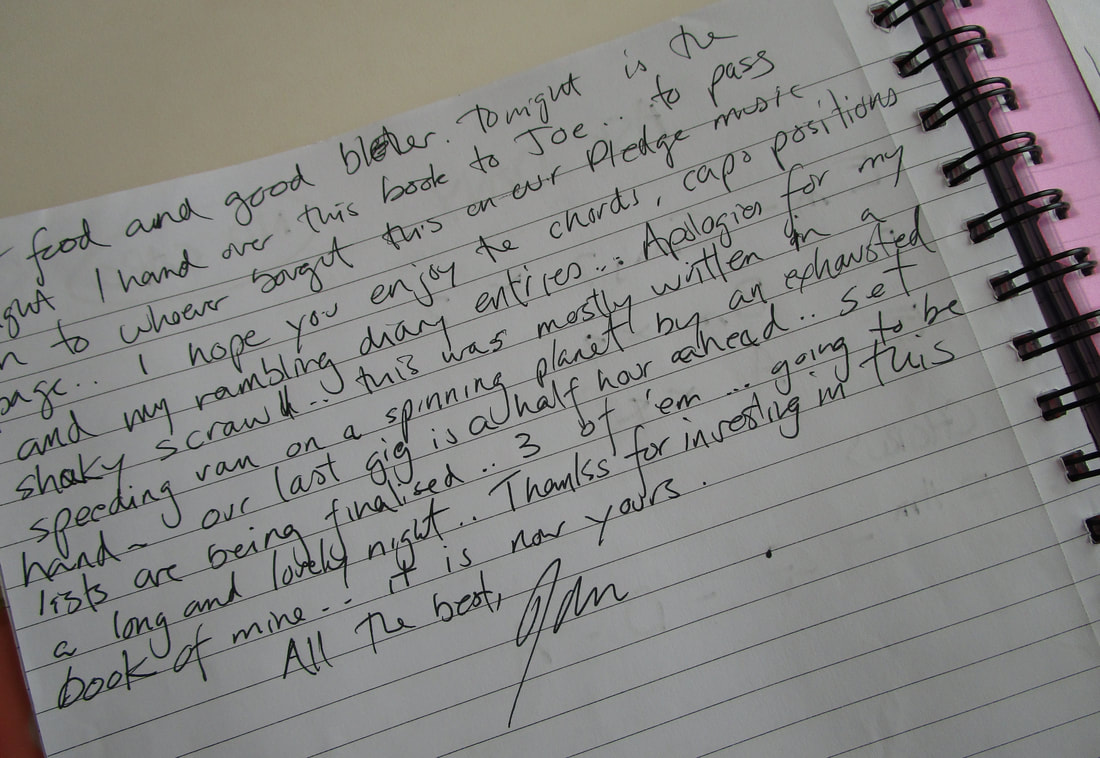 food and good blether. Tonight is the
I hand over this book to Joe... to pass
to whoever bought this on our Pledge music
page.. I hope you enjoy the chords, capo positions
and my rambling diary entires... Apologies for my
shaky scrawl... this was mostly written in a
speeding van on a spinning planet by an exhausted
hand ~ our last gig is a half hour ahead.. set
lists are being finalised.. 3 of 'em... going to be
a long and lovely night.. Thanks for investing in this
book of mine... it is now yours.
All the best,